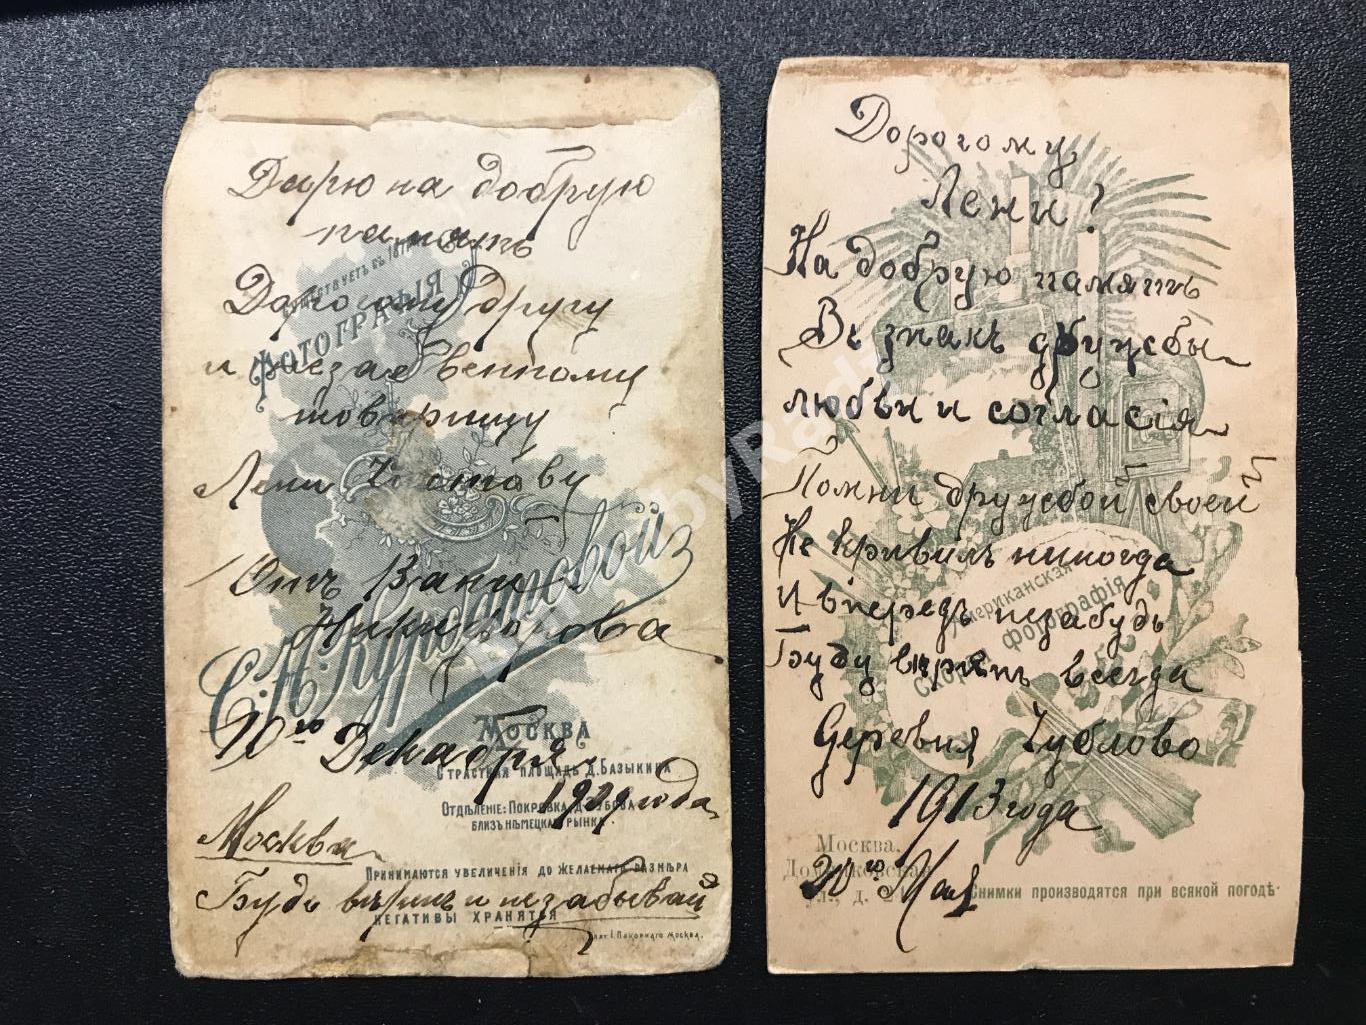 Дарю на добрую
память
Дорогому другу
и
товарищу
Лени
Отъ Вани
Никифорова
10го Декабря
года
Москва
Будь вѣренъ и незабывай
ФОТОГРАФІЯ
С.Н. Курбатовой
МОСКВА
СТРАСТНАЯ ПЛОЩАДЬ Д. БАЗЫКИНА
ОТДѢЛЕНІЕ: ПОКРОВКА
БЛИЗЪ НѢМЕЦКА РЫНКА
ПРИНИМАЮТСЯ УВЕЛИЧЕНІЯ ДО ЖЕЛАЕМАГО РАЗМѢРА
НЕГАТИВЫ ХРАНЯТСЯ
МОСКВА.
Дорогому
Лени!
На добрую память
Въ знакъ дружбы
любви и согласія
Помни дружбой своей
Не кривилъ никогда
И впередъ незабудь
Буду вѣренъ всегда
Деревня Чублово
1913 года
20го Мая
Американская
фотографія
Москва,
ул., д.
Снимки производятся при всякой погодѣ